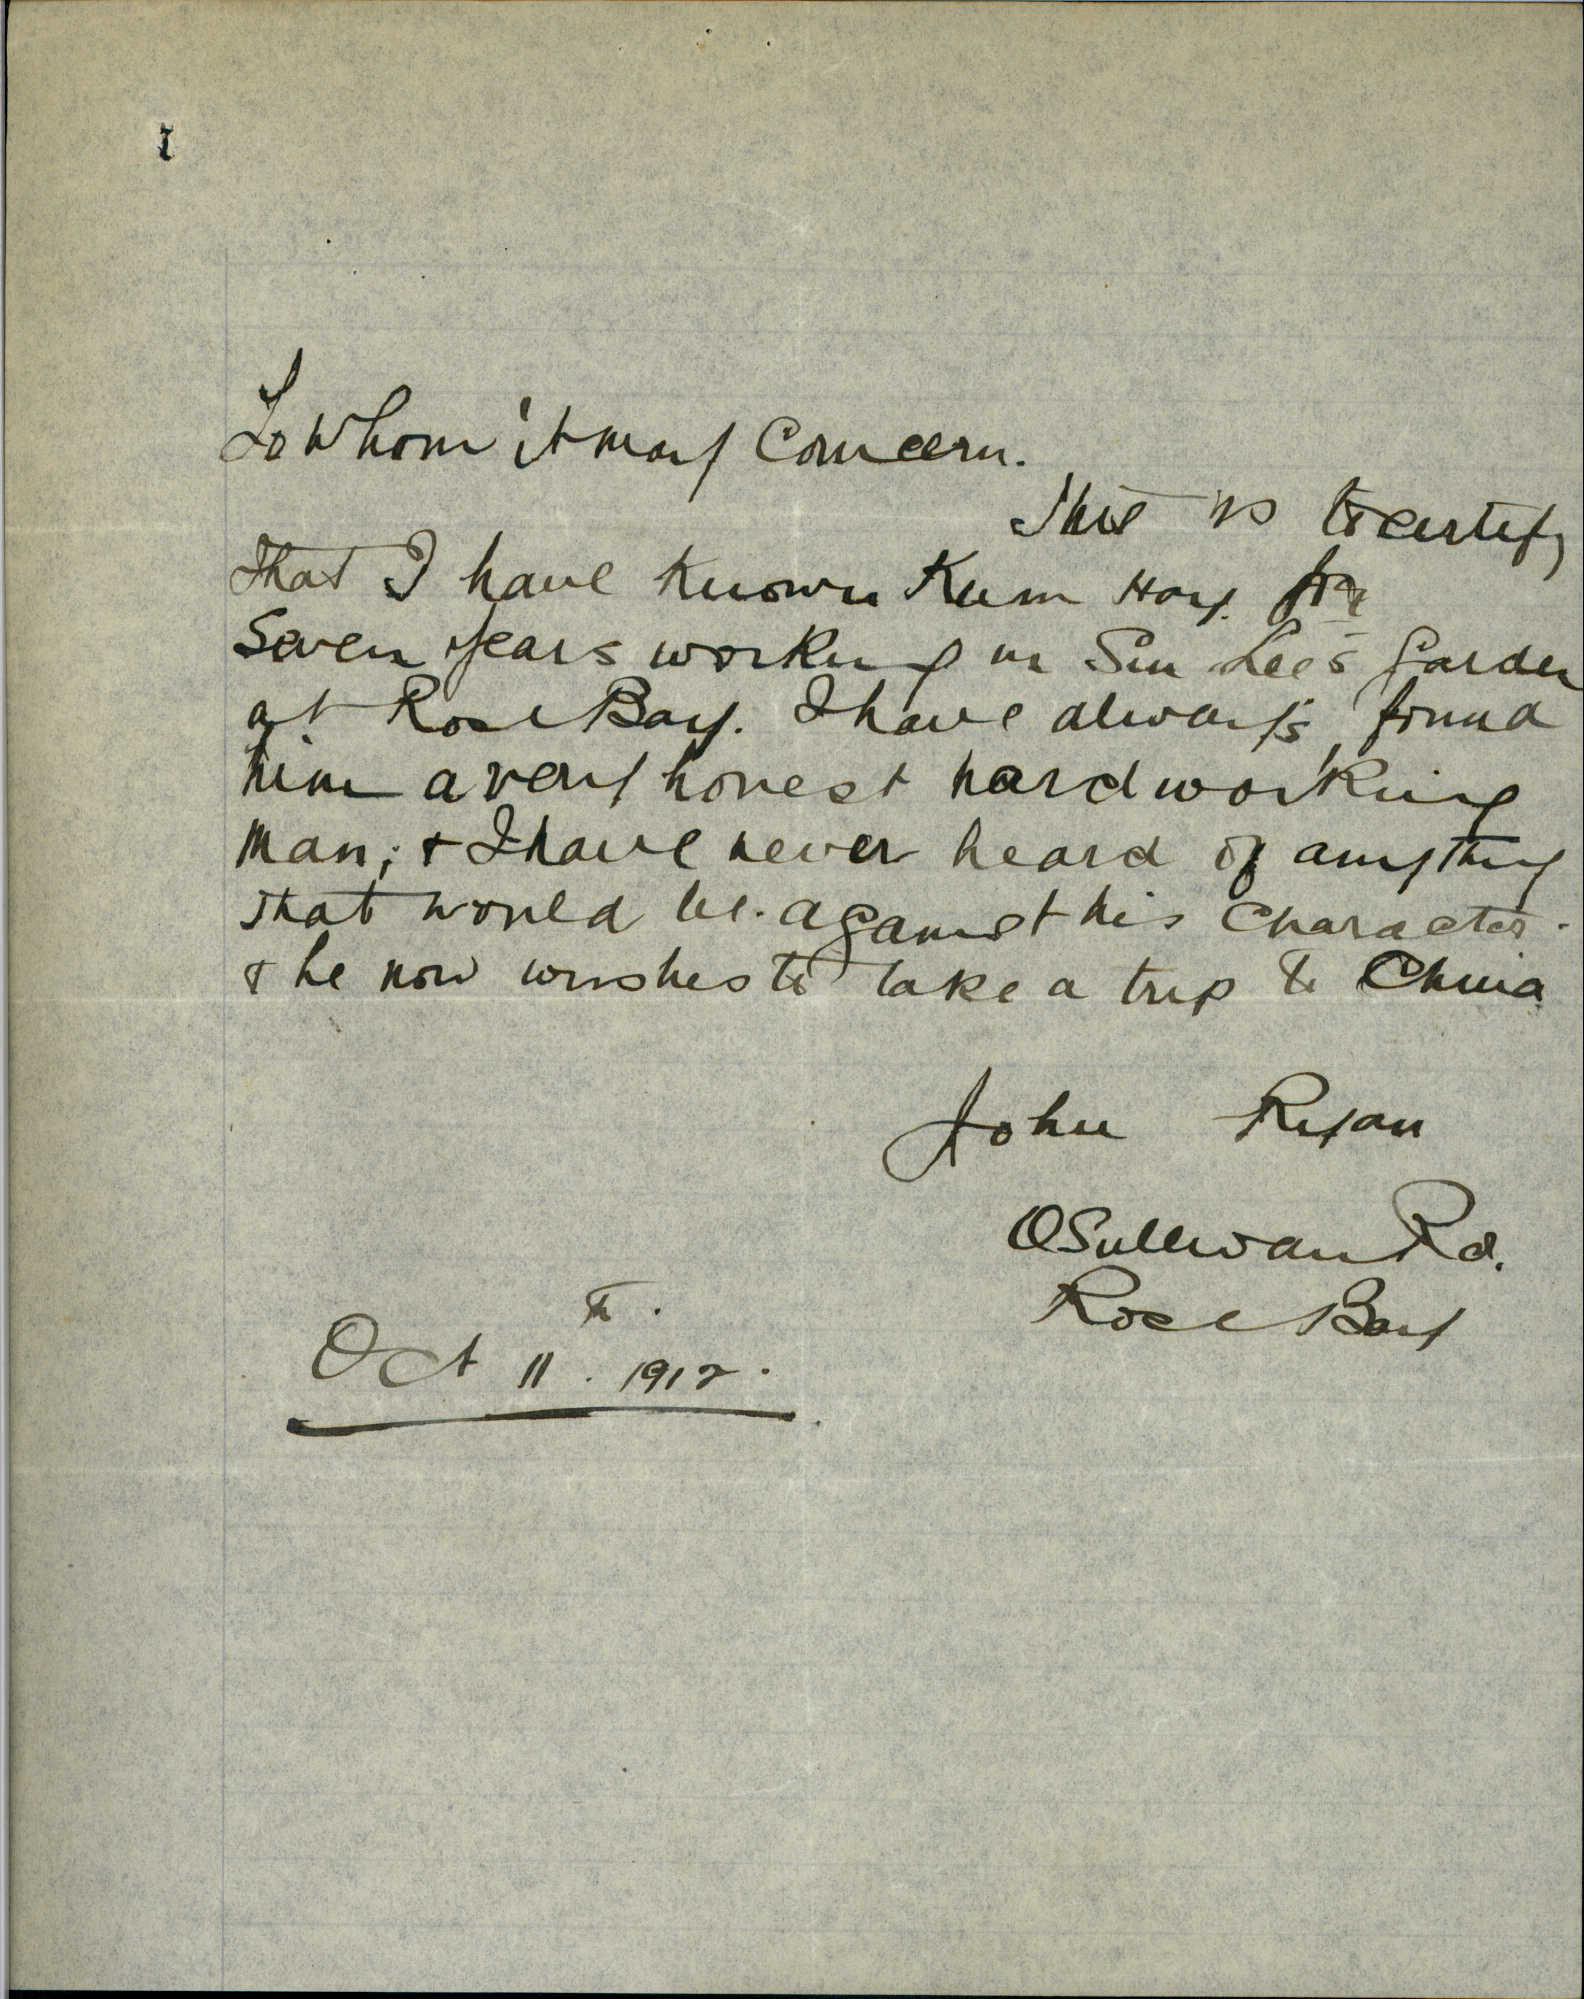 To Whom it may Concern.
This is to certify
that I have known Kum Hoy for
Seven years working in Sun Lee's Garden
at Rose Bay. I have always found
him a very honest hard working
man; & I have never heard of anything
that would be against his Character.
& he now wishes to take a trip to China
John Ryan
O Sullivan Rd.
Rose Bay
Oct 11th. 1912.